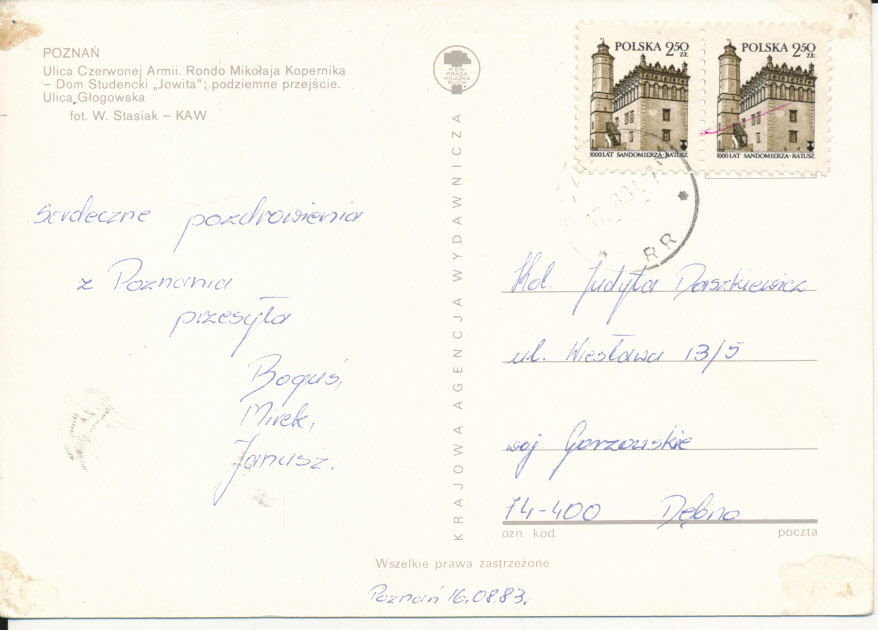 POZNAŃ
Ulica Czerwonej Armii. Rondo Mikołaja Kopernika
– Dom Studencki „Jowita"; podziemne przejście.
Ulica Głogowska
fot. W. Stasiak – KAW
Serdeczne pozdrowienia
z Poznania
przesyła
Boguś,
Mirek,
Janusz.
KRAJOWA AGENCJA WYDAWNICZA
POLSKA 2,50 ZŁ
1000 LAT SANDOMIERZA · RATUSZ
POLSKA 2,50 ZŁ
1000 LAT SANDOMIERZA · RATUSZ
RR
Kol. Judyta Daszkiewicz
ul. Wiesława 13/5
woj Gorzowskie
74-400 Dębno
ozn. kod. poczta
Wszelkie prawa zastrzeżone
Poznań 16.08.83.